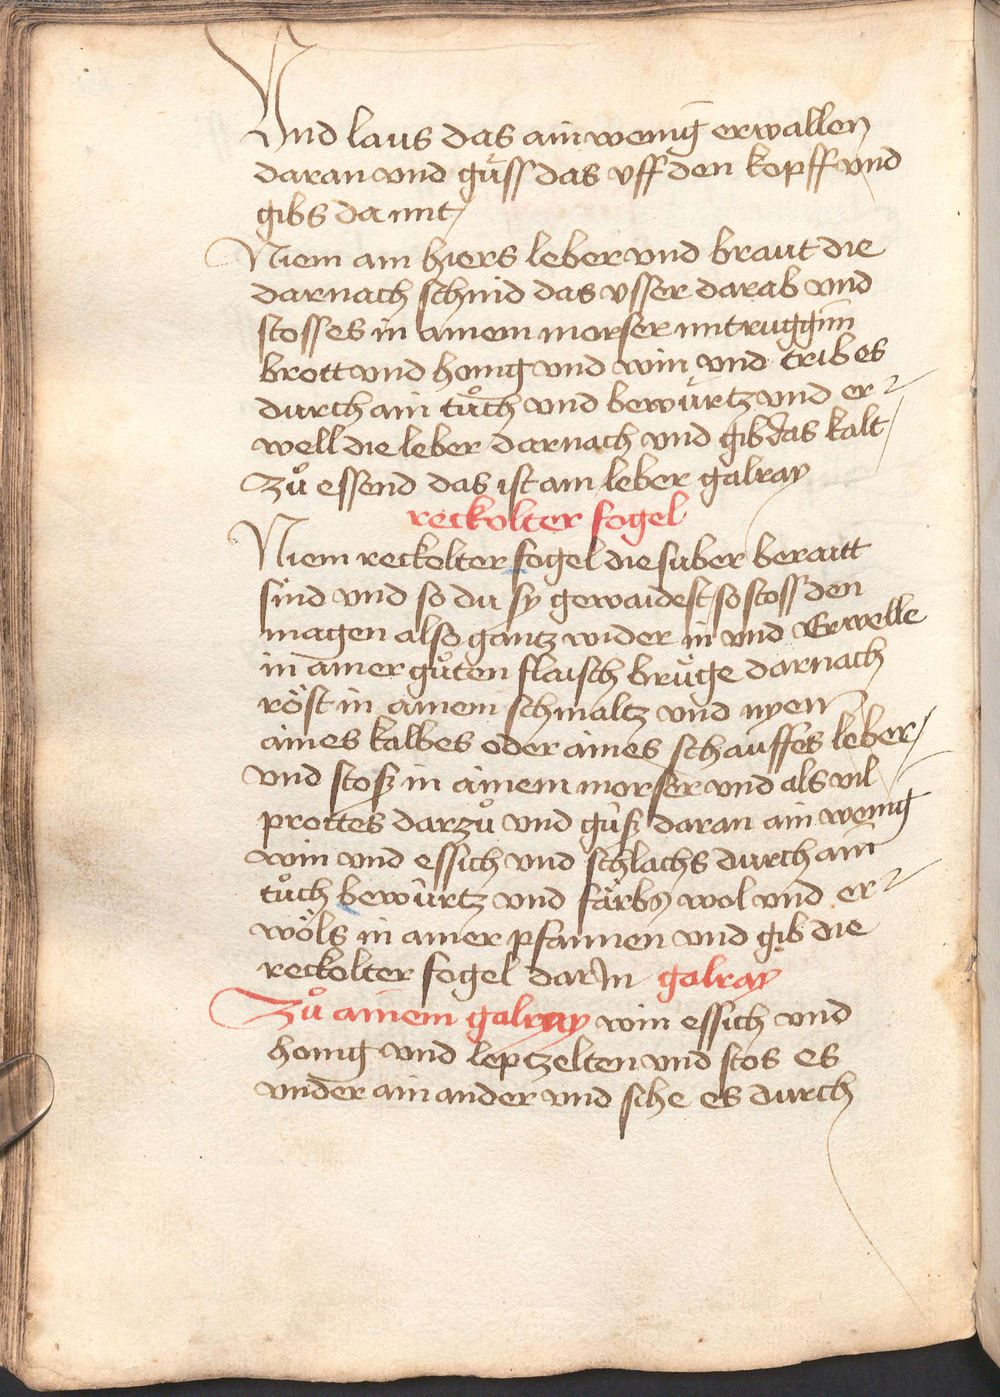 Vnd laus das ain wenig erwallen
daran vnd güss das vff den kopff vnd
gibs da mit
Niem ain hiers leber vnd braut die
darnach schnid das vsser darab vnd
stosses in ainem morser mit ruggim
brott vnd honig vnd win vnd tribes
durch ain tůch vnd bewürtz vnd er
well die leber darnach vnd gib das kalt
Zů essend das ist ain leber galray
reckolter fogel
Niem reckolter fogel die suber beraitt
sind vnd so du sy gewaidest so stoss den
magen also gantz wider in vnd Erwelle
in ainer gůten flaisch brüge darnach
röst in ainem schmaltz vnd nyem
aines kalbes oder aines schauffes leber
vnd stosz in ainem morser vnd als vil
prottes darzů vnd güsz daran ain wenig
win vnd essich vnd schlachs durch ain
tůch bewürtz vnd färbs wol vnd er
wöls in ainer pfannen vnd gib die
reckolter fogel darin galray
Zů ainem galray win essich vnd
honig vnd leptzelten vnd stos es
vnder ain ander vnd sche es durch